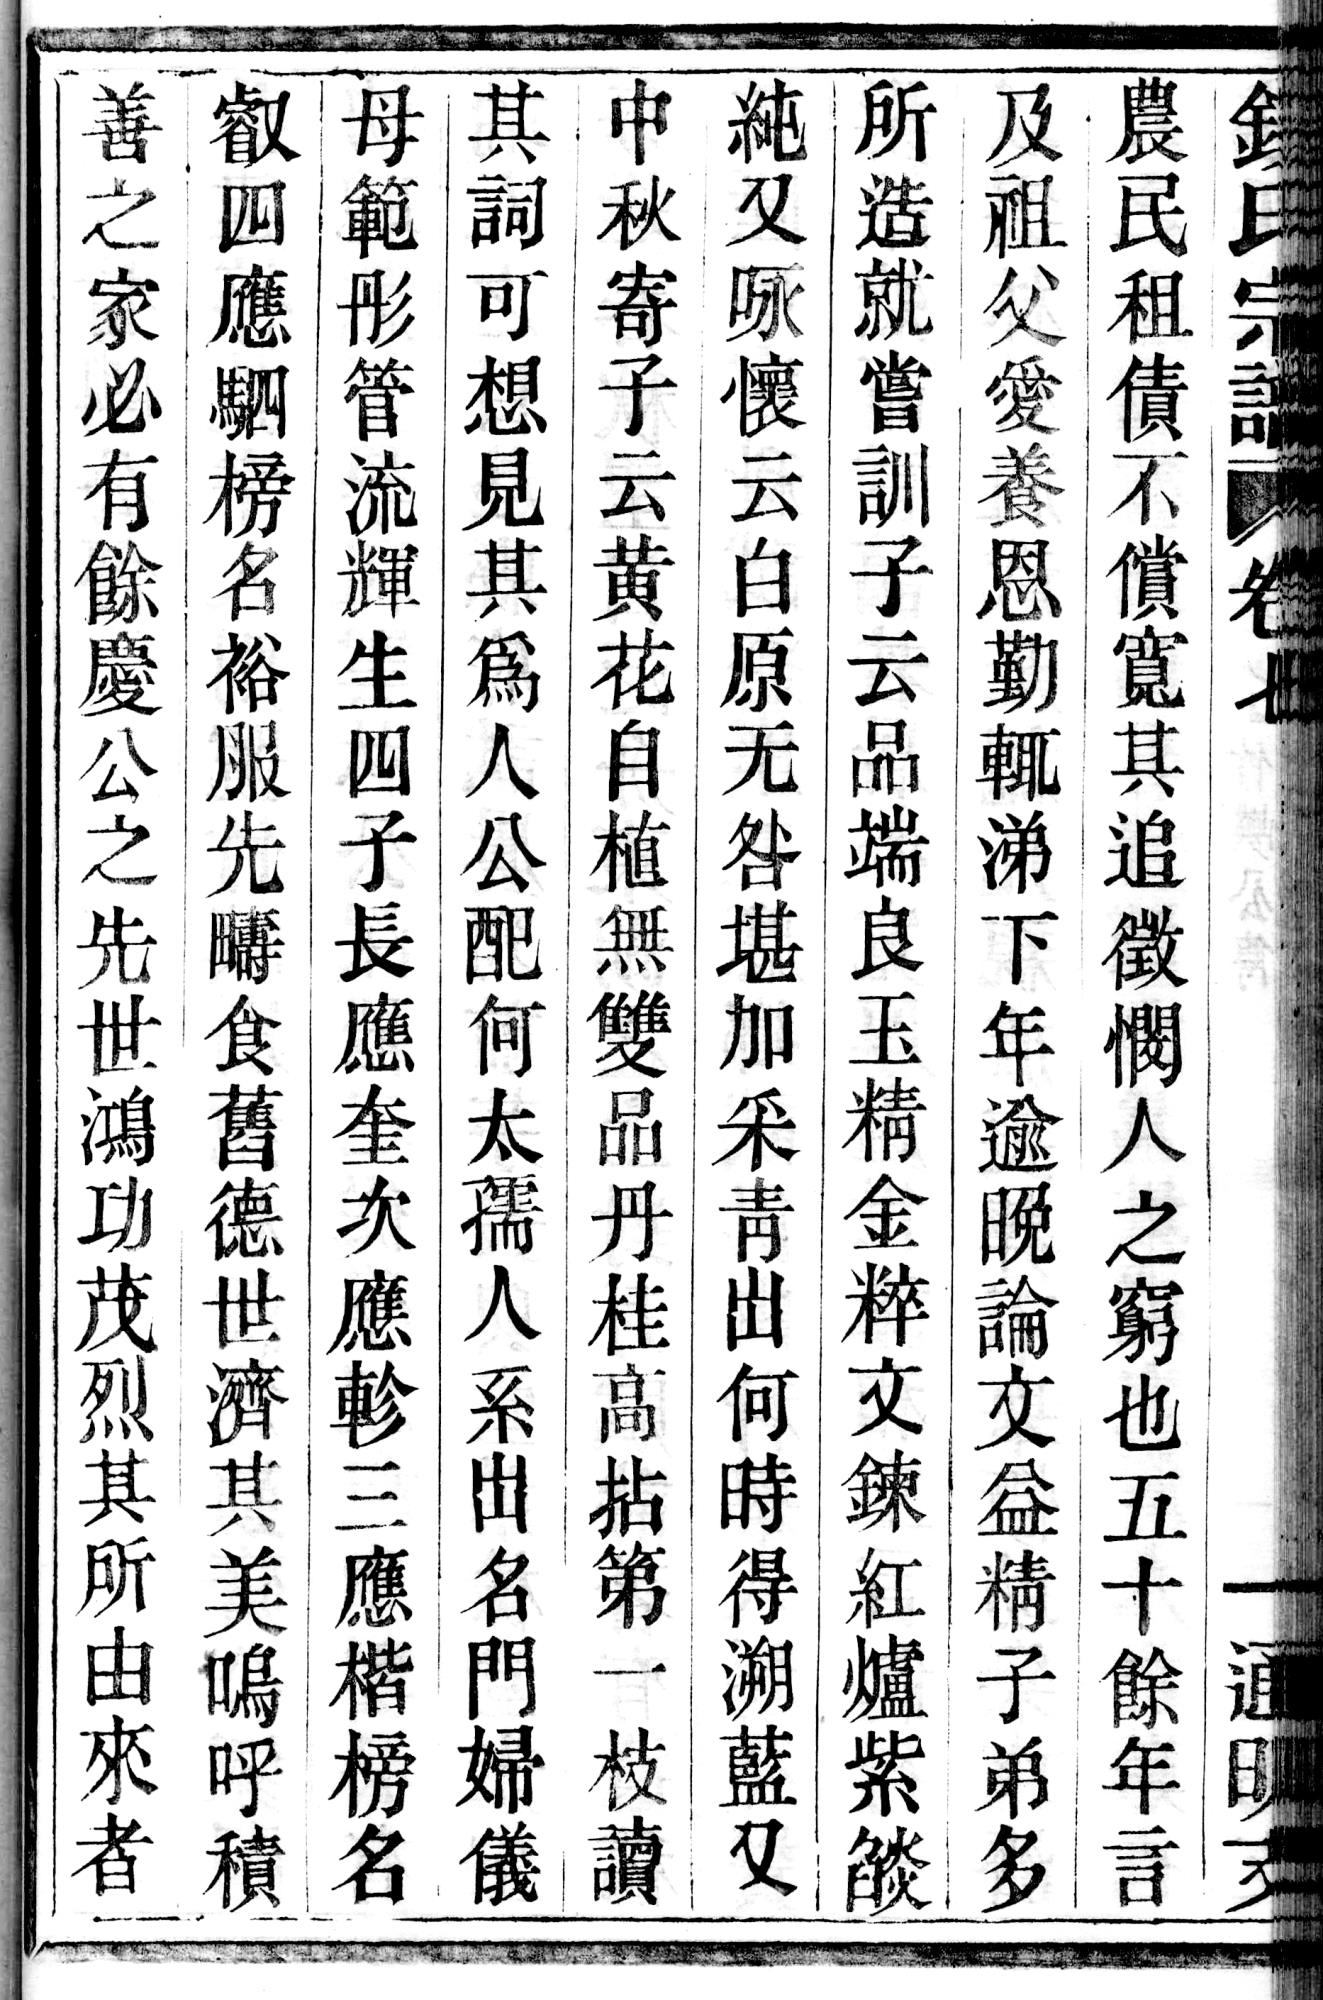 氏宗譜 卷七 通明
農民租債不償寬其追徵憫人之窮也五十餘年言
及祖父愛養恩勤輒涕下年逾晚論文益精子弟多
所造就嘗訓子云品端良玉精金粹文鍊紅爐紫燄
純又咏懷云白原无咎堪加采青出何時得溯藍又
中秋寄子云黄花自植無雙品丹桂高拈第一枝讀
其詞可想見其爲人公配何太孺人系出名門婦儀
母範彤管流輝生四子長應奎次應軫三應楷榜名
叡四應駟榜名裕服先疇食舊德世濟其美嗚呼積
善之家必有餘慶公之先世鴻功茂烈其所由來者